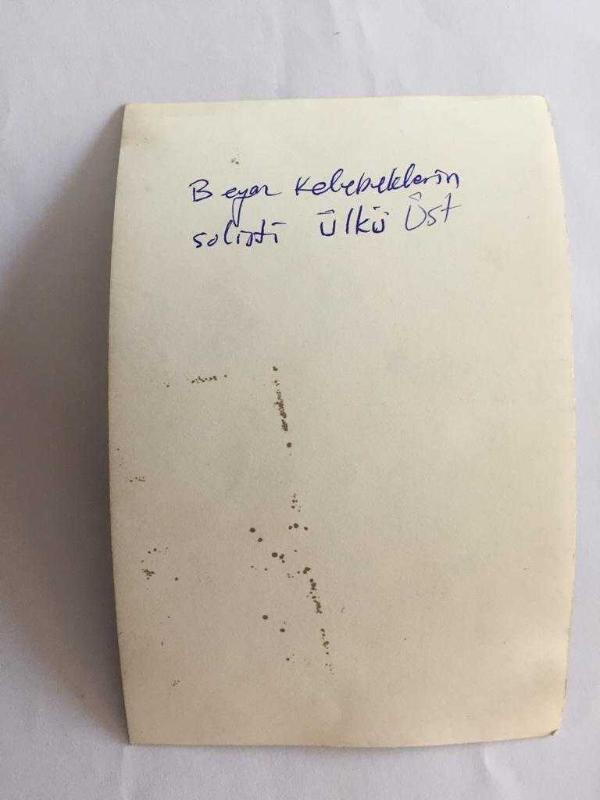 Beyaz Kelebeklerin
solisti Ülkü Üst